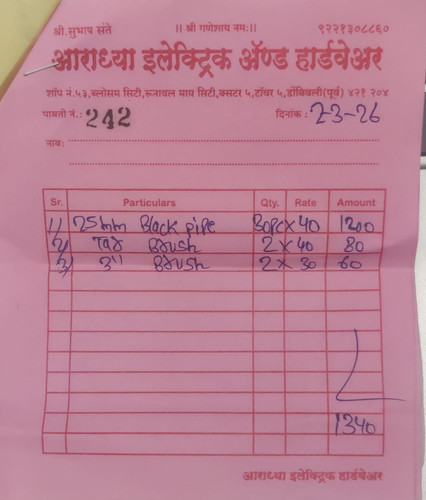 श्री.सुभाष संते ।। श्री गणेशाय नमः।। ९२२१३०८८६०
आराध्या इलेक्ट्रिक ॲण्ड हार्डवेअर
शॉप नं.५३,ब्लोसम सिटी,रूनावल माय सिटी,क्सटर ५,टॉवर ५,डोंबिवली(पूर्व) ४२१ २०४
पावती नं.: 242 दिनांक : 23-26
नाव:
Sr. Particulars Qty. Rate Amount
1) 25mm Black pipe 30pc x 40 1200
2) Tar Brush 2 x 40 80
3) 3" Brush 2 x 30 60
1340
आराध्या इलेक्ट्रिक हार्डवेअर